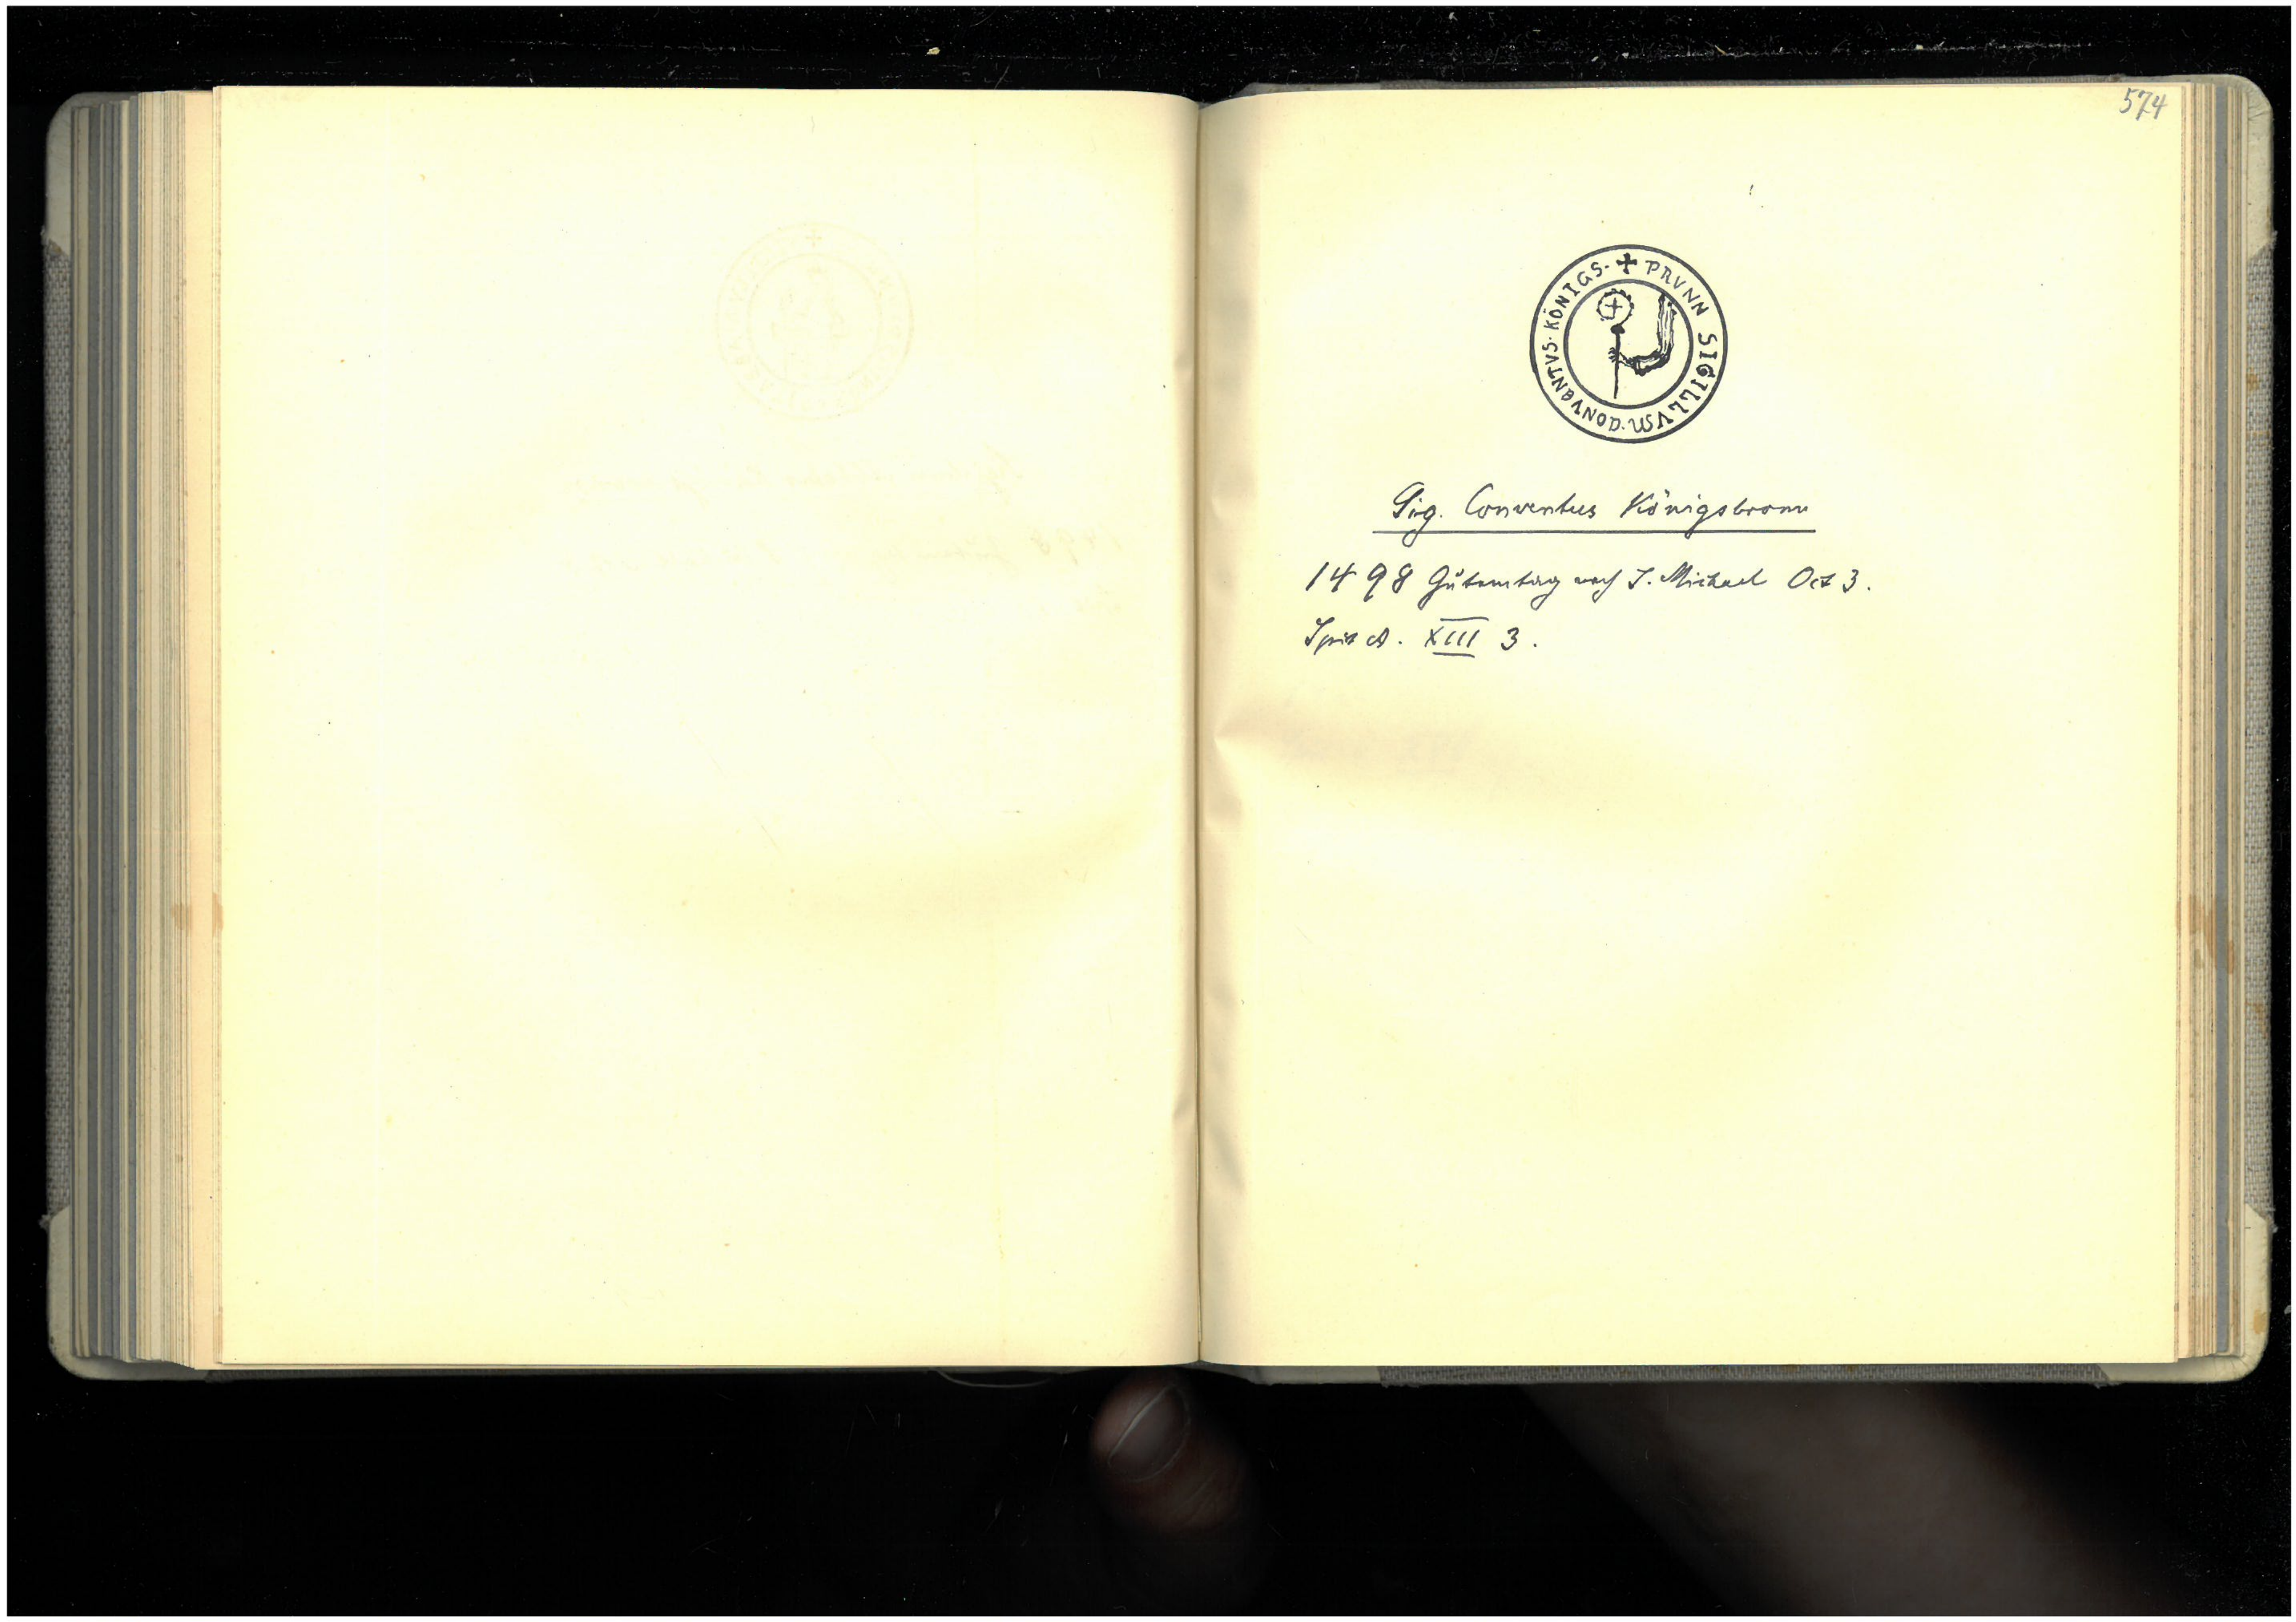 574
✠ PRVNN SIGILLVM · CONVENTVS · KÖNIGS ·
Sig. Conventus Königsbronn
1498 Gůtemtag nach S. Michael Oct 3.
Spit A. XIII 3.